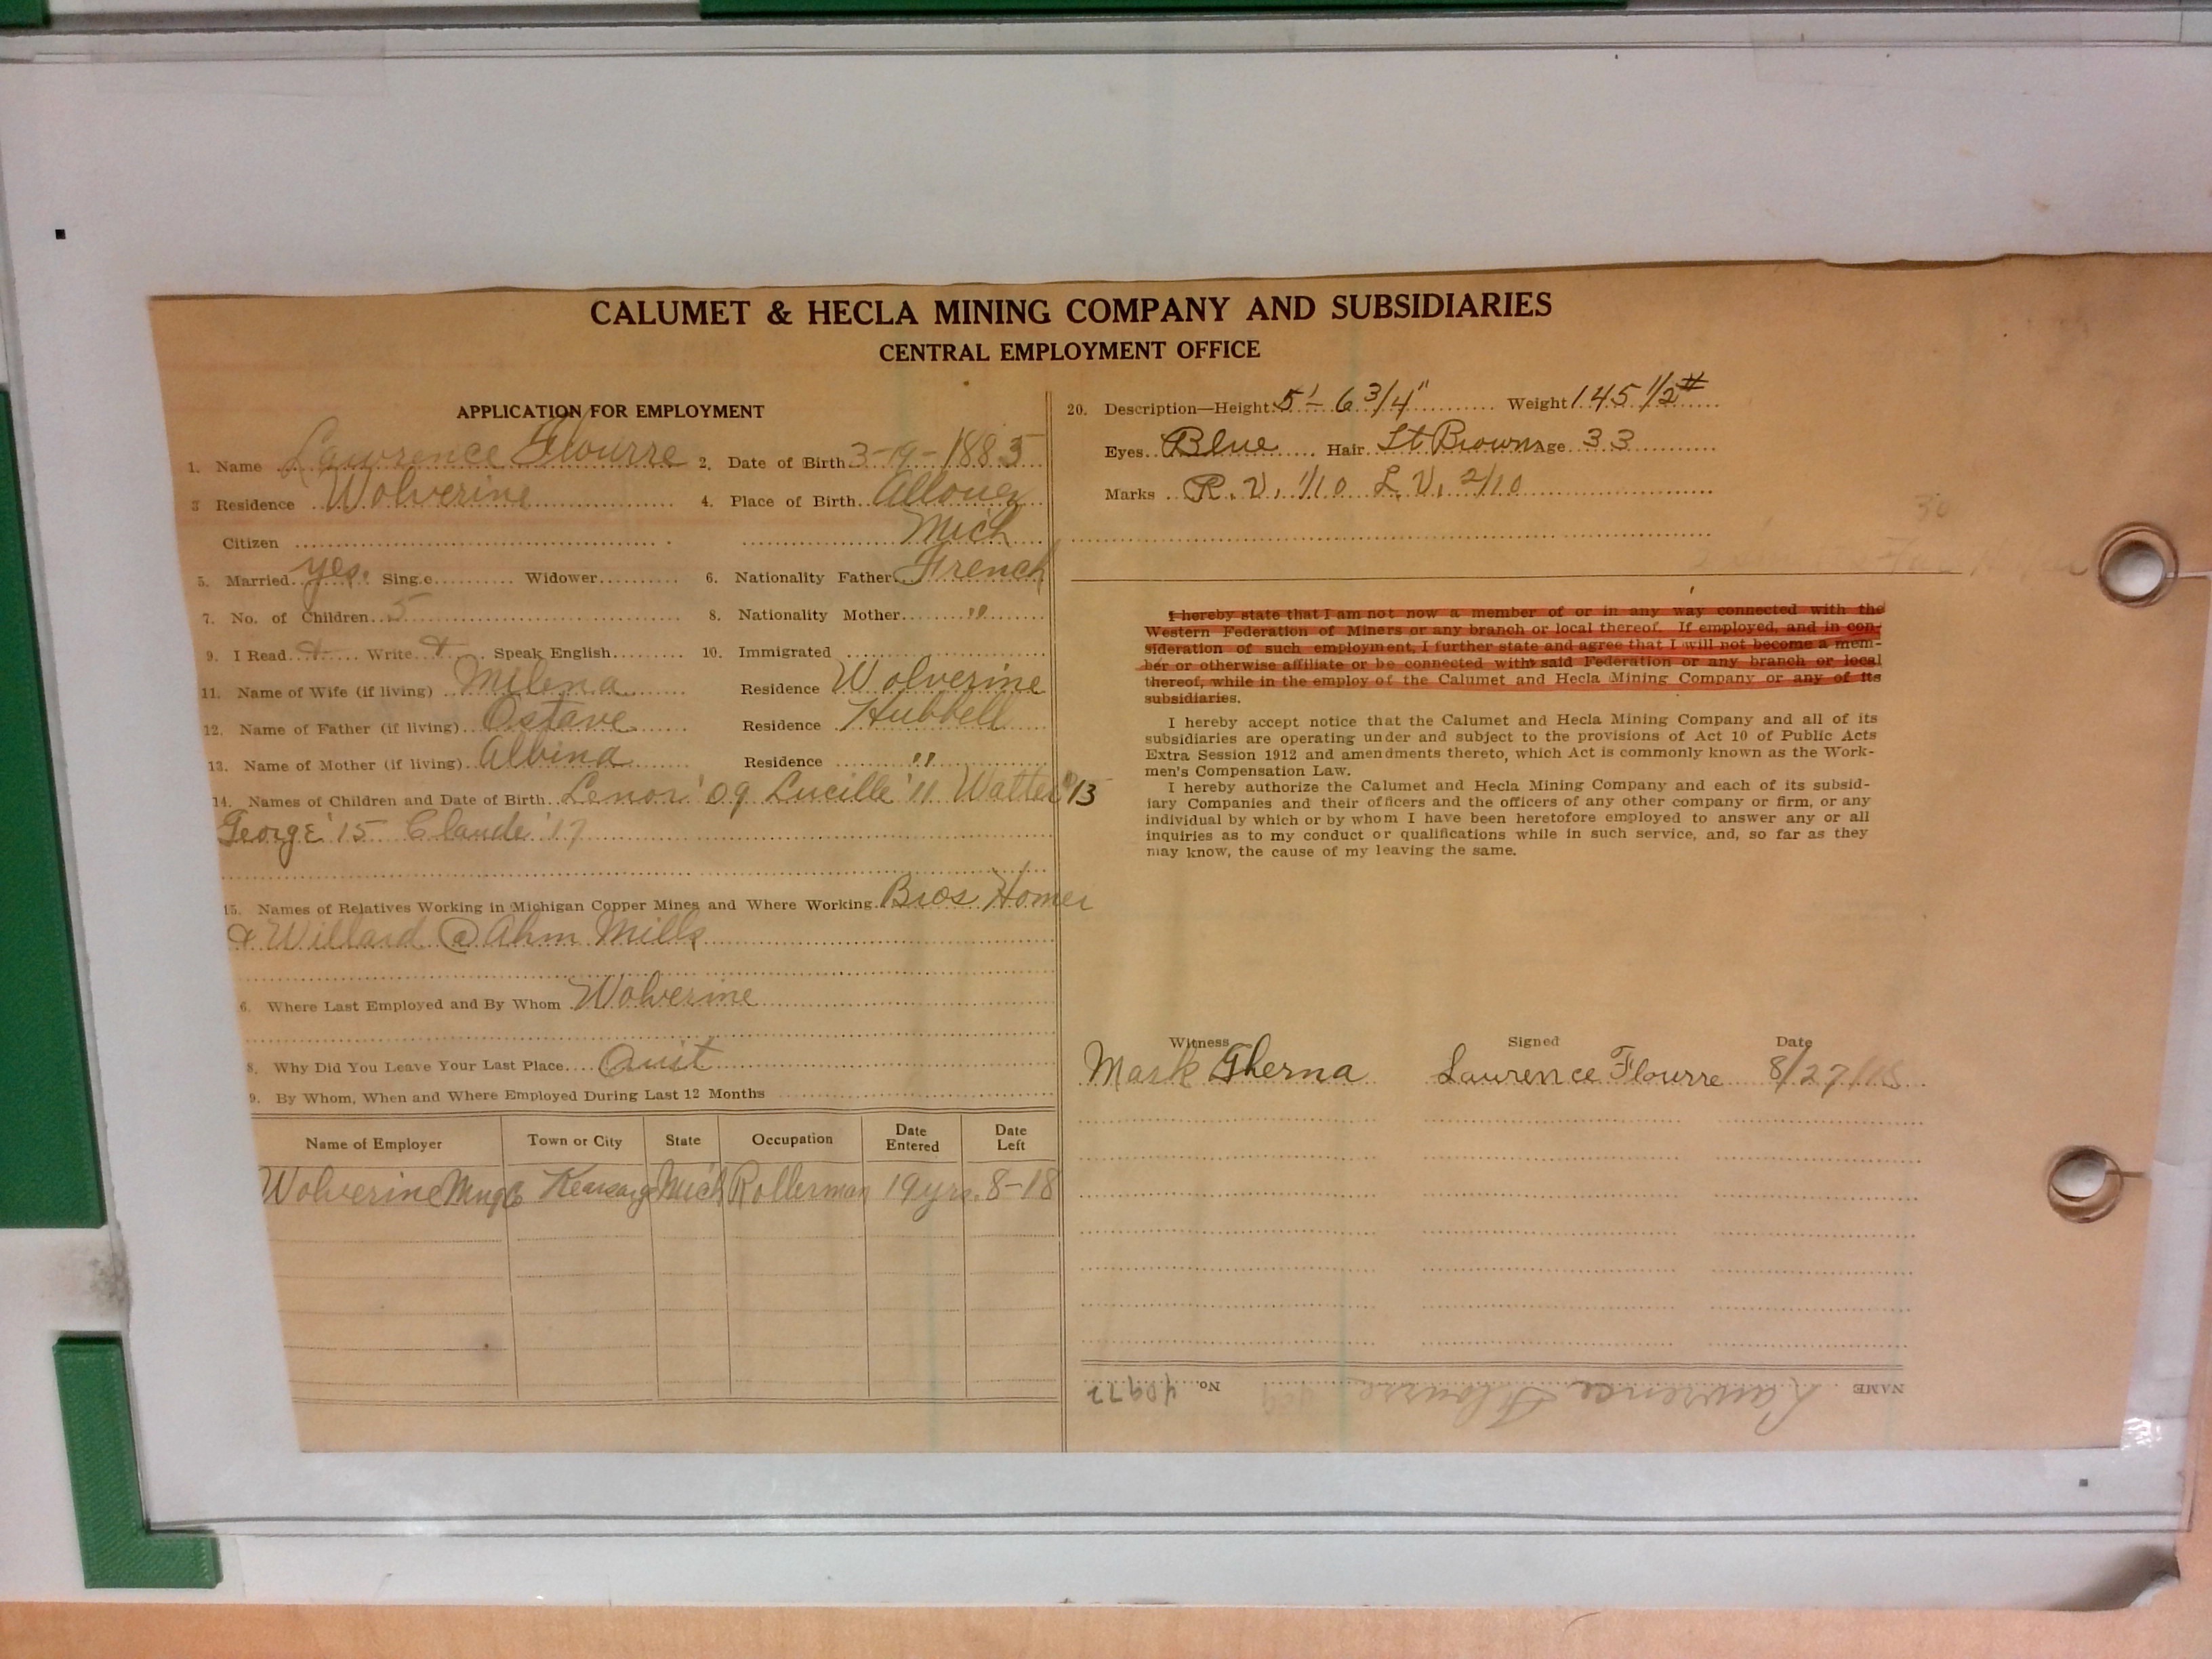 CALUMET & HECLA MINING COMPANY AND SUBSIDIARIES
CENTRAL EMPLOYMENT OFFICE
APPLICATION FOR EMPLOYMENT
1. Name Lawrence Flourre 2. Date of Birth 3-19-1885
3 Residence Wolverine 4. Place of Birth Allouez
Citizen Mich
5. Married yes. Sing e Widower 6. Nationality Father French
7. No. of Children 5 8. Nationality Mother "
9. I Read + Write + Speak English 10. Immigrated
11. Name of Wife (if living) Milena Residence Wolverine
12. Name of Father (if living) Octave Residence Hubbell
13. Name of Mother (if living) Albina Residence "
14. Names of Children and Date of Birth Lenor '09 Lucille '11 Walter '13
George '15 Claude '17
15. Names of Relatives Working in Michigan Copper Mines and Where Working Bros Homer
& Willard @ Ahm Mills
6. Where Last Employed and By Whom Wolverine
8. Why Did You Leave Your Last Place Quit
9. By Whom, When and Where Employed During Last 12 Months
Name of Employer Town or City State Occupation Date Entered Date Left
Wolverine Mng Co Kearsarge Mich Rollerman 19 yrs. 8-18
20. Description—Height 5'-6 3/4" Weight 145 1/2 #
Eyes Blue Hair Lt Brown Age 33
Marks R. V. 1/10 L. V. 2/10
30
I hereby state that I am not now a member of or in any way connected with the
Western Federation of Miners or any branch or local thereof. If employed, and in con-
sideration of such employment, I further state and agree that I will not become a mem-
ber or otherwise affiliate or be connected with said Federation or any branch or local
thereof, while in the employ of the Calumet and Hecla Mining Company or any of its
subsidiaries.
I hereby accept notice that the Calumet and Hecla Mining Company and all of its
subsidiaries are operating under and subject to the provisions of Act 10 of Public Acts
Extra Session 1912 and amendments thereto, which Act is commonly known as the Work-
men's Compensation Law.
I hereby authorize the Calumet and Hecla Mining Company and each of its subsid-
iary Companies and their officers and the officers of any other company or firm, or any
individual by which or by whom I have been heretofore employed to answer any or all
inquiries as to my conduct or qualifications while in such service, and, so far as they
may know, the cause of my leaving the same.
Witness Signed Date
Mark Gherna Lawrence Flourre 8/27/18
NAME Lawrence Flourre No. 40972